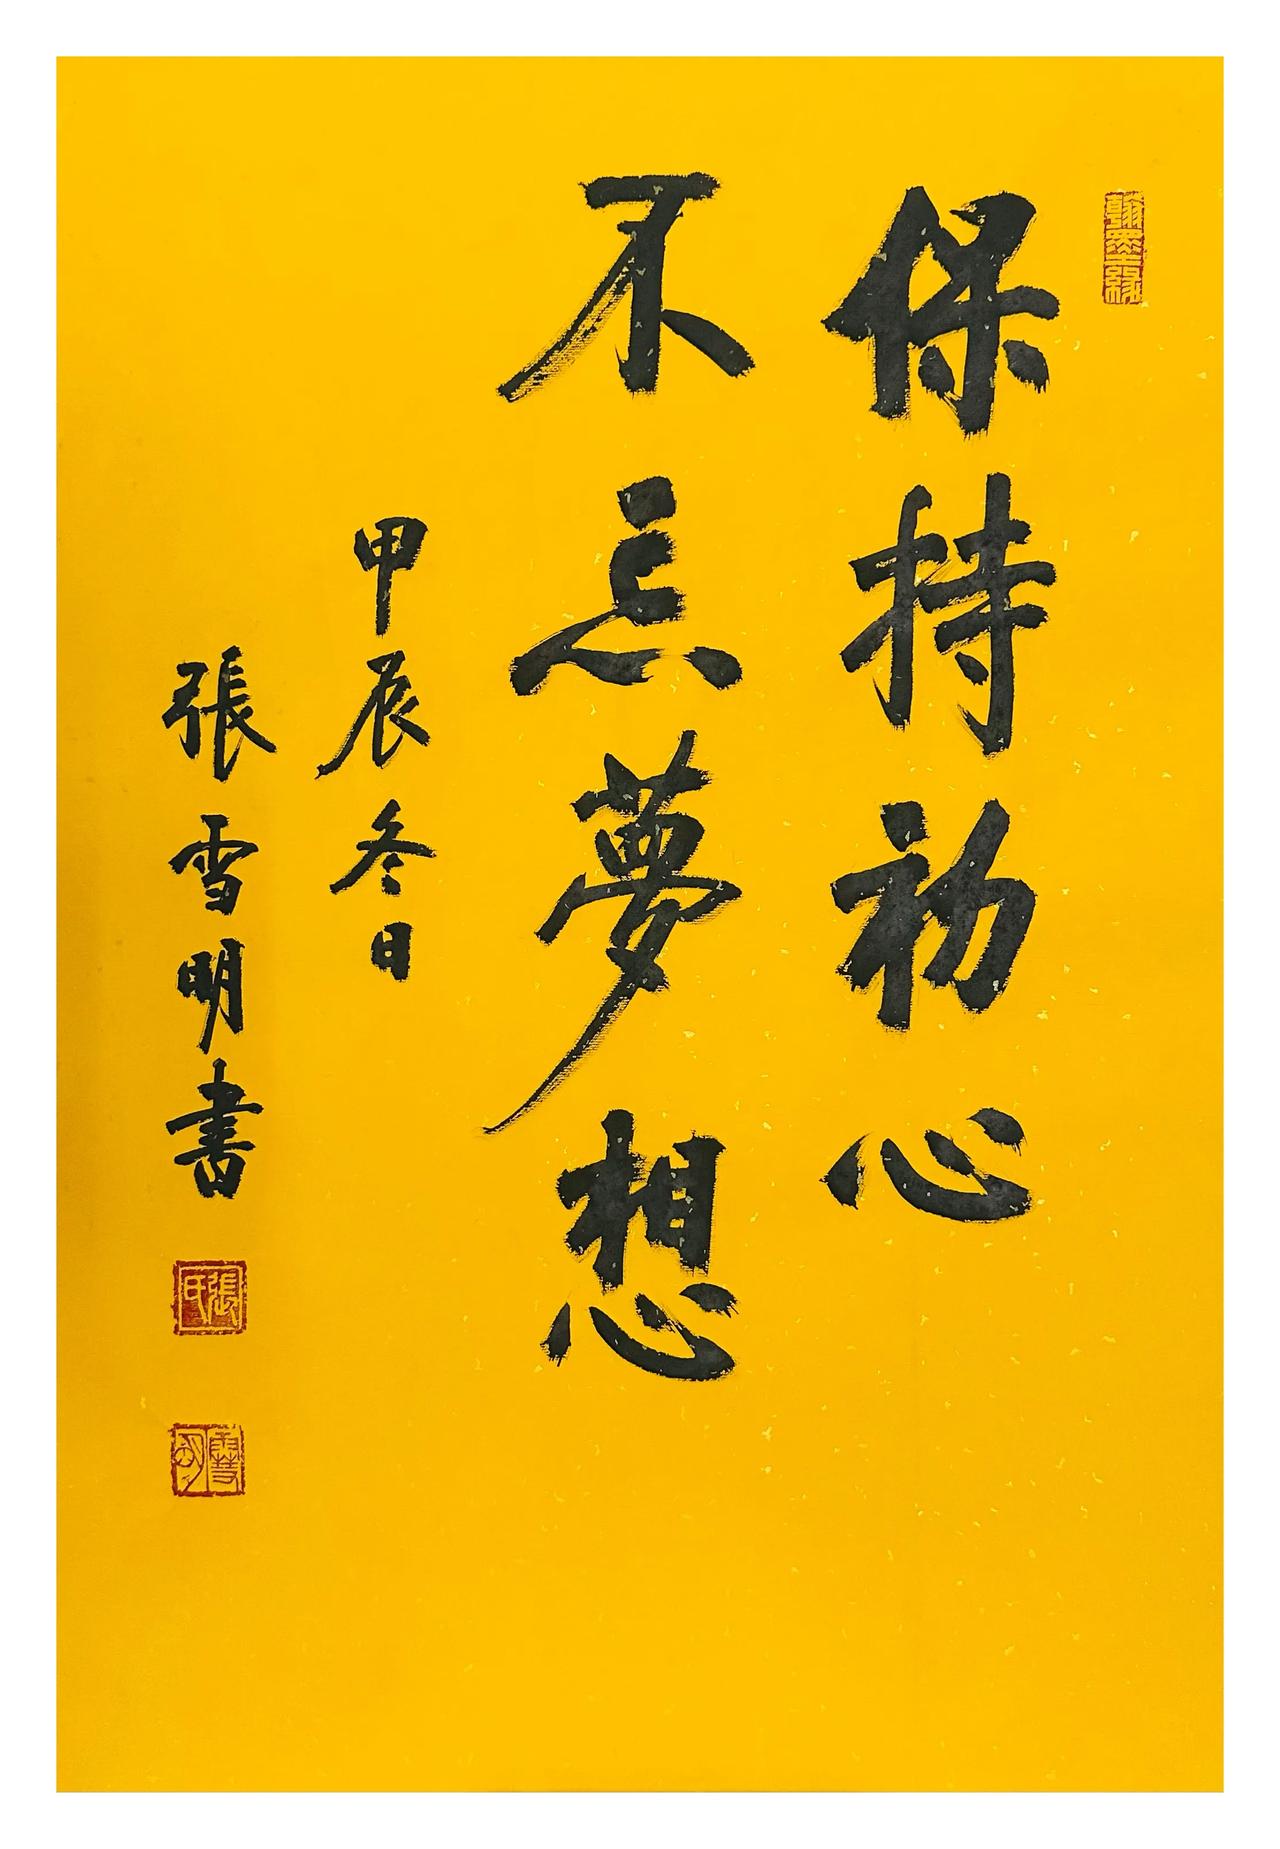 翰墨缘
保持初心
不忘夢想
甲辰冬日
張雪明書
張氏
雪明